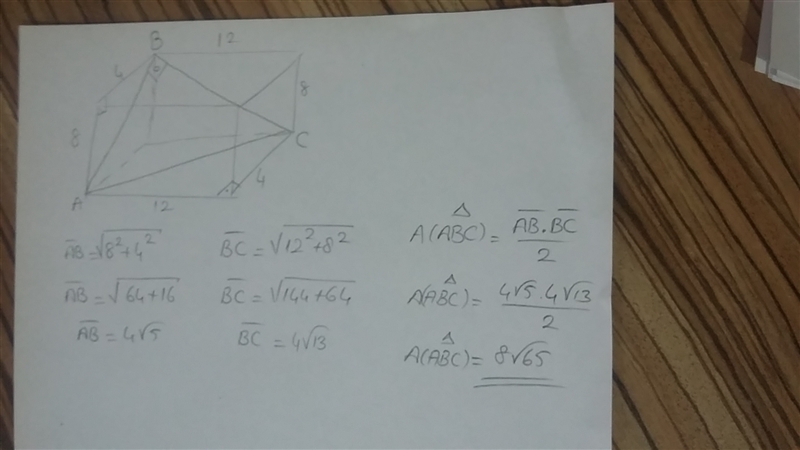 B 12
4 6
8 8
A C
12 4
AB = √8²+4²
AB = √64+16
AB = 4√5
BC = √12²+8²
BC = √144+64
BC = 4√13
A(ABC) = AB.BC / 2
A(ABC) = 4√5.4√13 / 2
A(ABC) = 8√65